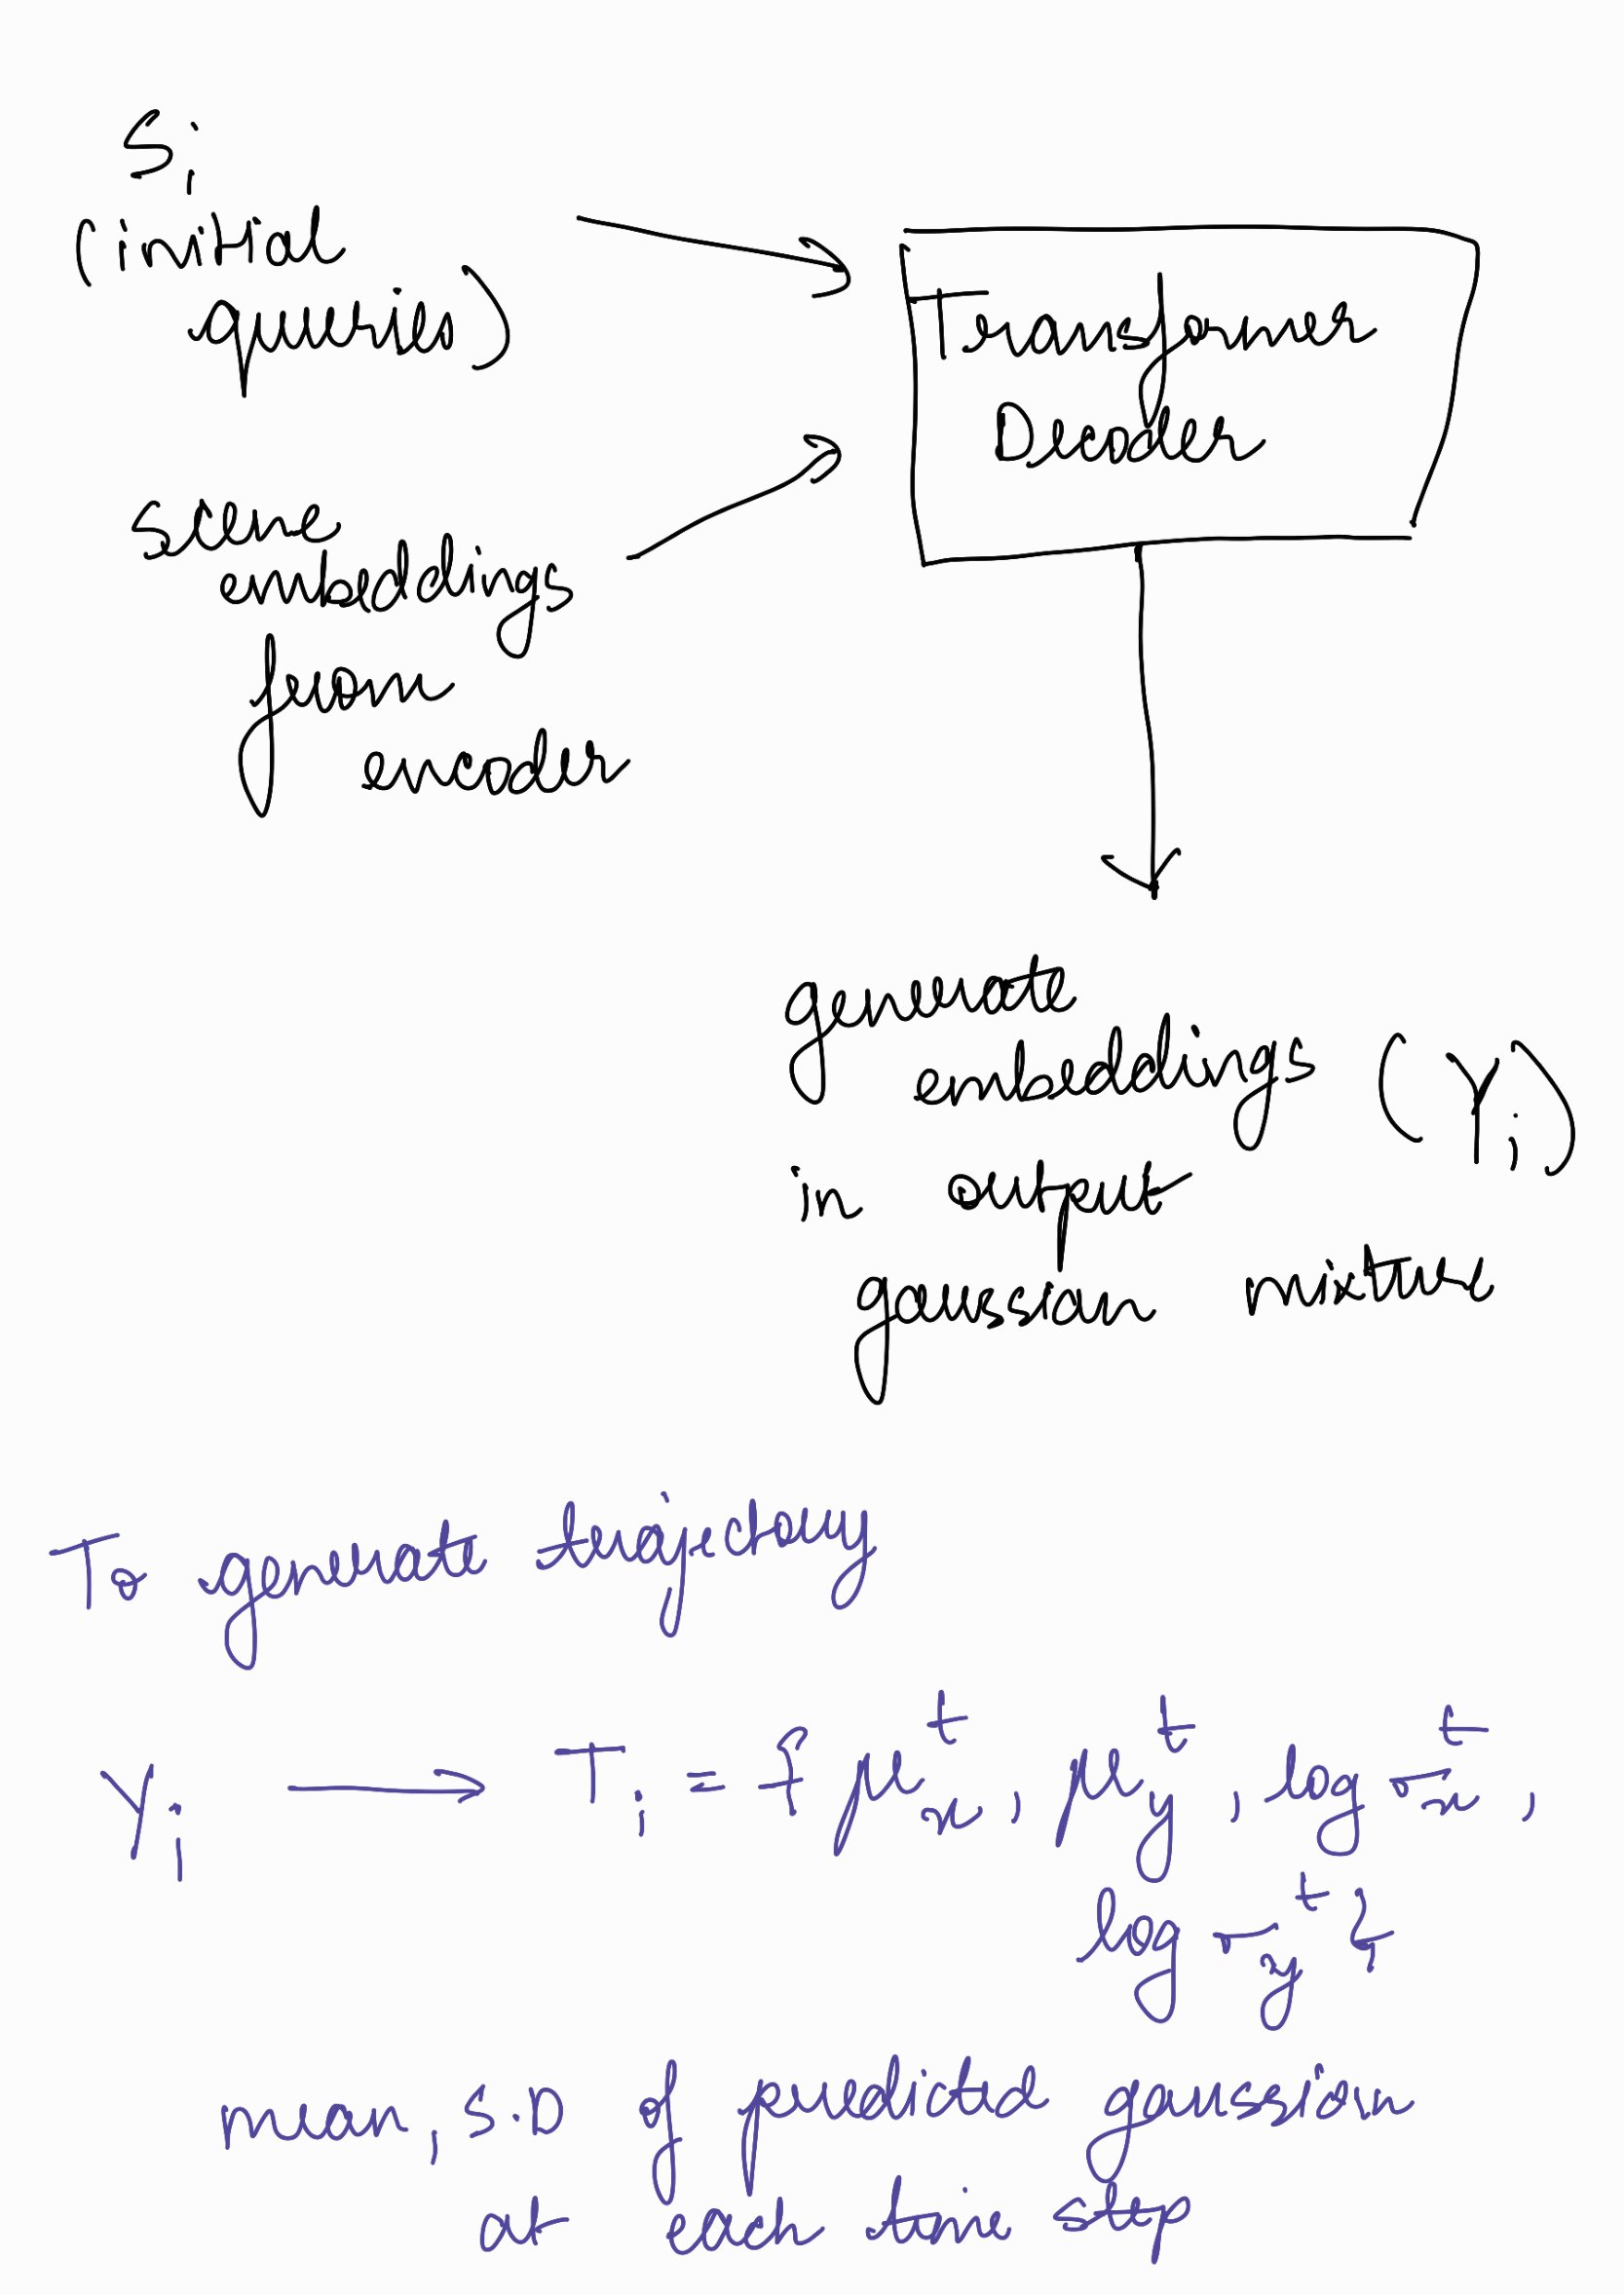 S_i
(initial
queries)
Transformer
Decoder
scene
embeddings
from
encoder
generate
embeddings (Y_i)
in output
gaussian mixture
To generate trajectory
Y_i → T_i = { μ_x^t, μ_y^t, log σ_x^t,
log σ_y^t }
mean, S.D of predicted gaussian
at each time step